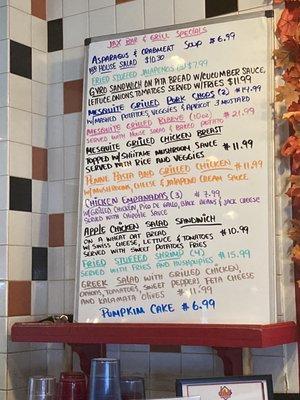 JAX BAR & GRILL SPECIALS
ASPARAGUS & CRABMEAT SOUP $6.99
W/ HOUSE SALAD $10.30
FRIED STUFFED JALAPENOS $7.99
GYRO SANDWICH ON PITA BREAD W/ CUCUMBER SAUCE,
LETTUCE, ONIONS, TOMATOES SERVED W/ FRIES $11.99
MESQUITE GRILLED PORK CHOPS (2) $14.99
W/ MASHED POTATOES, VEGGIES & APRICOT MUSTARD
MESQUITE GRILLED RIBEYE (10oz) $21.99
SERVED WITH HOUSE SALAD & BAKED POTATO
MESQUITE GRILLED CHICKEN BREAST
TOPPED W/ SHIITAKE MUSHROOM, SAUCE
SERVED WITH RICE AND VEGGIES $11.99
PENNE PASTA AND GRILLED CHICKEN $11.99
W/ MUSHROOMS, CHEESE & JALAPENO CREAM SAUCE
CHICKEN EMPANADAS (3) $7.99
W/ GRILLED CHICKEN, PICO DE GALLO, BLACK BEANS & JACK CHEESE
SERVED WITH CHIPOTLE SAUCE
APPLE CHICKEN SALAD SANDWICH
ON A WHEAT OAT BREAD $10.99
W/ SWISS CHEESE, LETTUCE & TOMATOES
SERVED WITH SWEET POTATOES FRIES
FRIED STUFFED SHRIMP (4) $15.99
SERVED WITH FRIES AND HUSHPUPPIES
GREEK SALAD WITH GRILLED CHICKEN,
ONIONS, TOMATOES, SWEET PEPPERS, FETA CHEESE
AND KALAMATA OLIVES $11.99
PUMPKIN CAKE $6.99